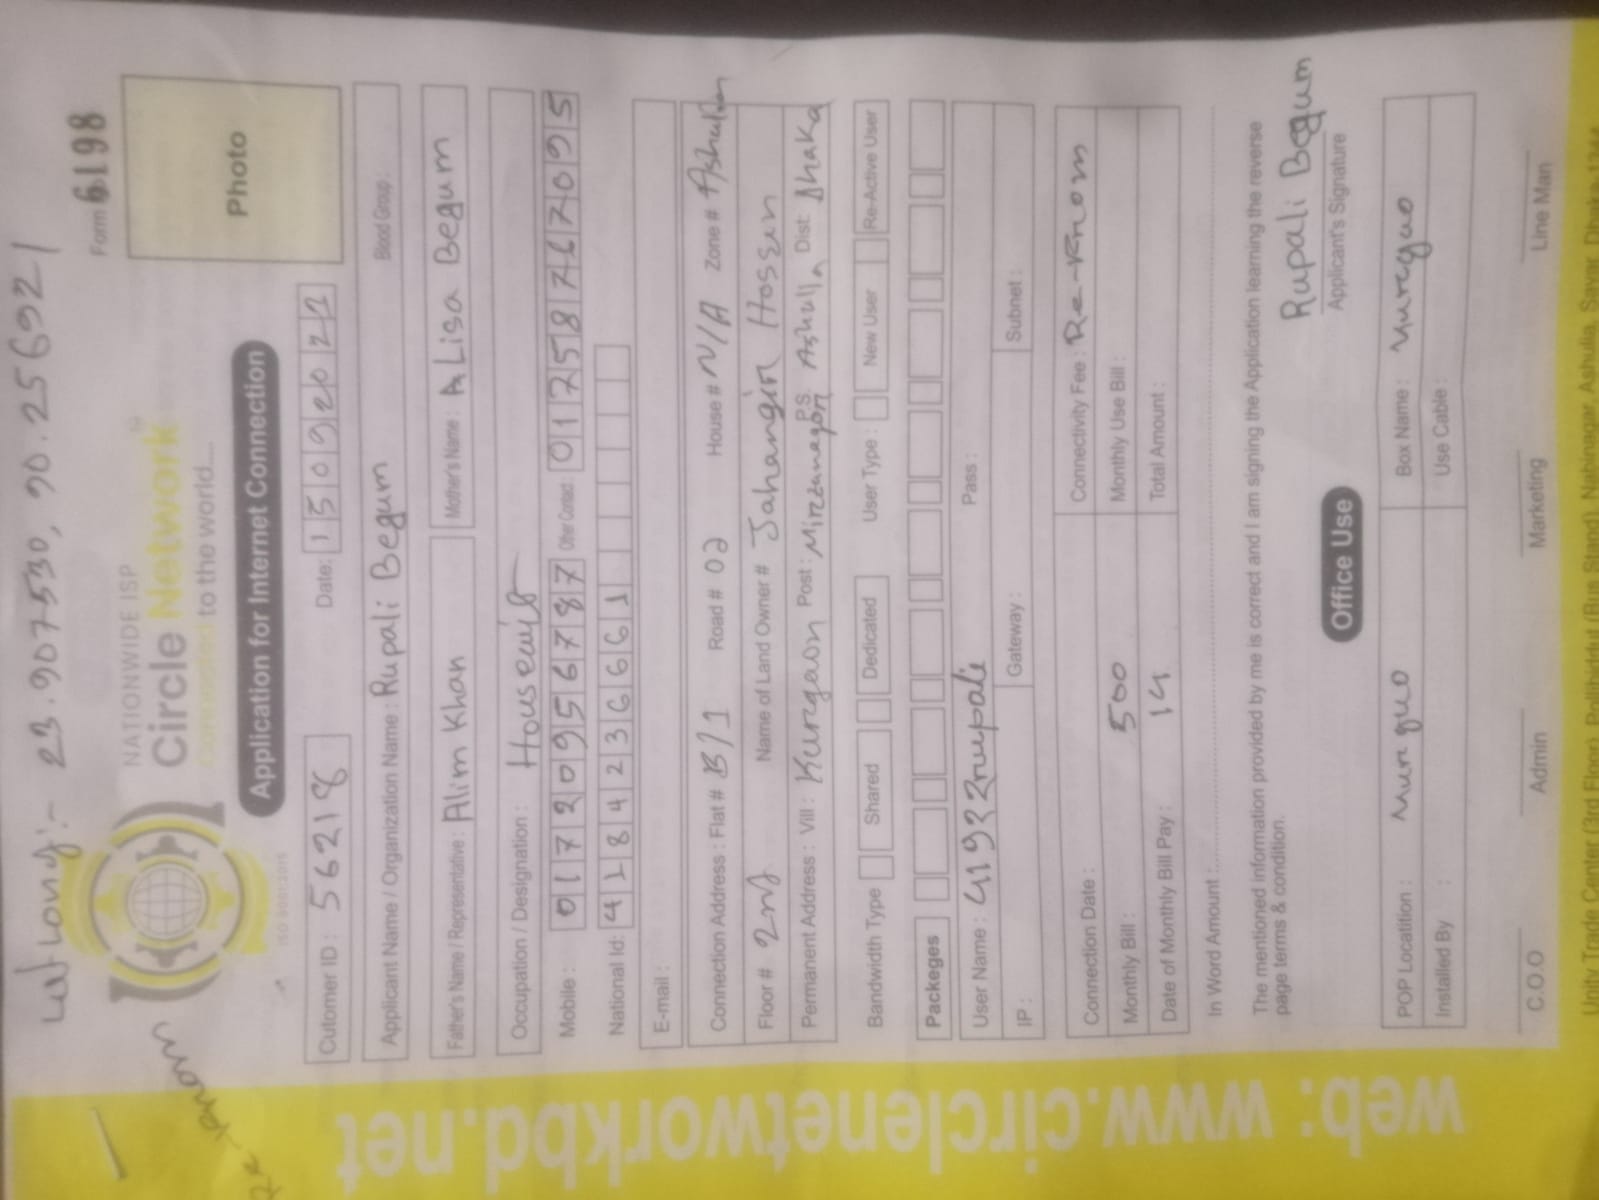 Lat Long:- 23.907530, 90.256921
Form 6198
NATIONWIDE ISP
Circle Network
to the world....
ISO 9001:2015
Photo
Application for Internet Connection
Cutomer ID : 56218 Date: 15092022
Applicant Name / Organization Name : Rupali Begum Blood Group :
Father's Name / Representative : Alim Khan Mother's Name : ALisa Begum
Occupation / Designation :
Mobile : 01720956787 Other Contact 01758767095
National Id: 4184236661
E-mail :
Connection Address : Flat # B/1 Road # 02 House # N/A Zone #
Floor # 2nd Name of Land Owner # Jahangir Hossen
Permanent Address : Vill : Kurgaon Post : Mirzanagor P.S: Ashulia Dist: Dhaka
Bandwidth Type Shared Dedicated User Type : New User Re-Active User
Packeges
User Name : 41932rupali Pass :
IP : Gateway : Subnet :
Connection Date : Connectivity Fee :
Monthly Bill : 500 Monthly Use Bill :
Date of Monthly Bill Pay : 14 Total Amount :
In Word Amount :
The mentioned information provided by me is correct and I am signing the Application learning the reverse
page terms & condition.
Rupali Begum
Applicant's Signature
Office Use
POP Locatition : Box Name :
Installed By : Use Cable :
C.O.O Admin Marketing Line Man
Unity Trade Center (3rd Floor), Pollibiddut (Bus Stand), Nabinagar, Ashulia, Savar, Dhaka-1344
web: www.circlenetworkbd.net